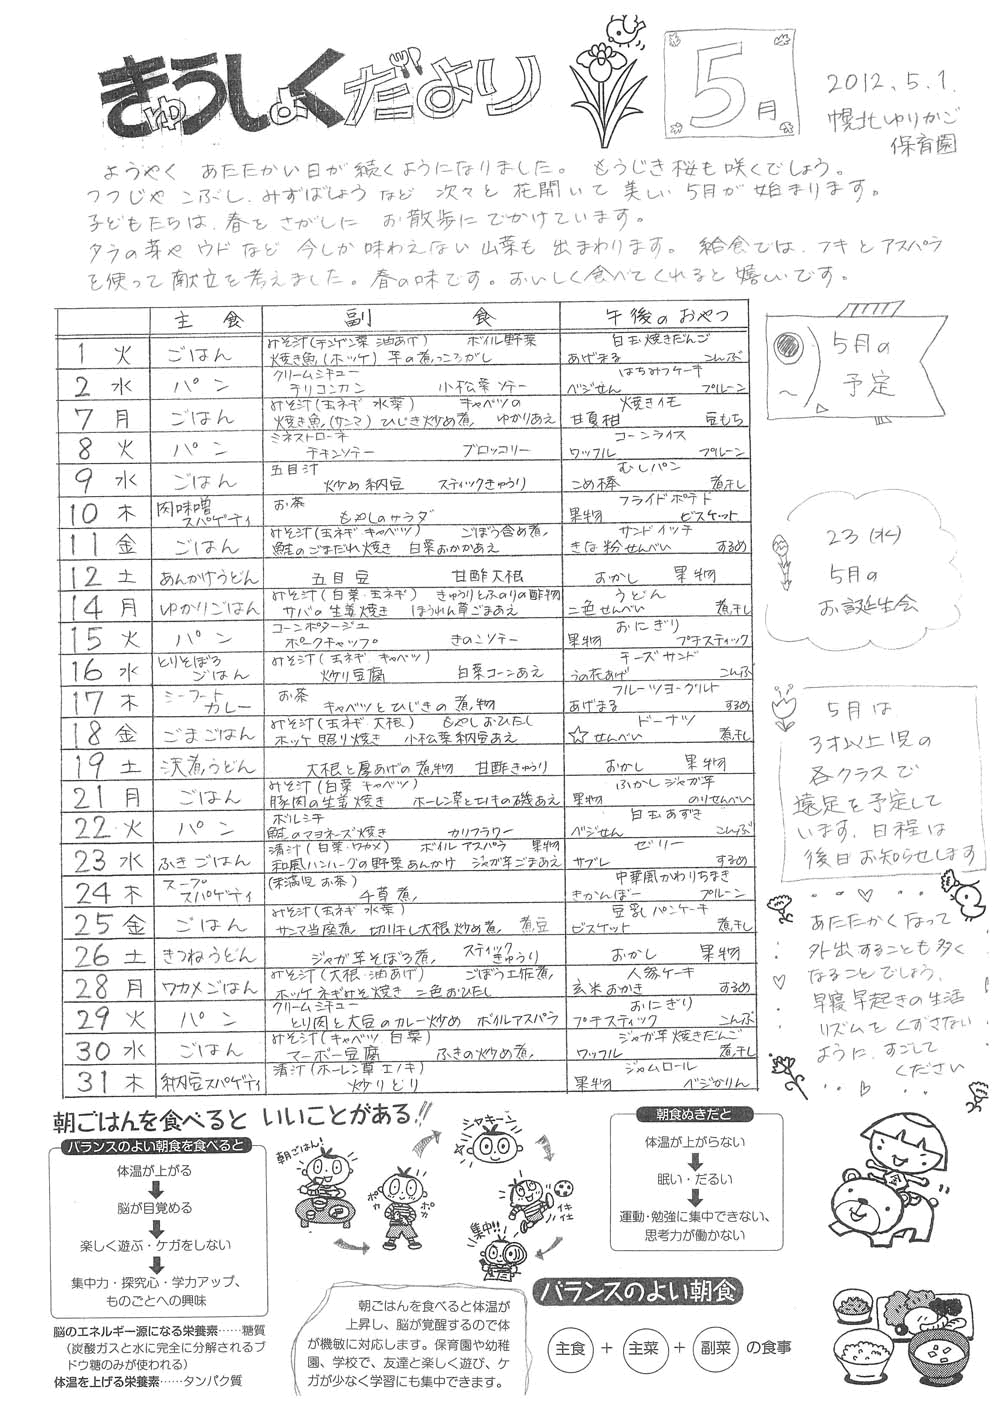 きゅうしょくだより
5月
2012.5.1.
幌北ゆりかご
保育園
ようやく あたたかい日が続くようになりました。もうじき桜も咲くでしょう。
つつじや こぶし、みずばしょう など 次々と 花開いて 美しい 5月が 始まります。
子どもたちは、春を さがしに お散歩に でかけています。
タラの芽や ウド など 今しか 味わえない 山菜も 出まわります。給食では、フキとアスパラ
を使って 献立を考えました。春の味です。おいしく食べてくれると 嬉しいです。
主食 副食 午後のおやつ
1 火 ごはん みそ汁(チンゲン菜 油あげ) ボイル野菜 焼き魚(ホッケ) 芋の煮っころがし 白玉焼きだんご あげまる こんぶ
2 水 パン クリームシチュー チリコンカン 小松菜ソテー はちみつケーキ ベジせん プルーン
7 月 ごはん みそ汁(玉ネギ 水菜) キャベツの 焼き魚(サンマ) ひじき炒め煮 ゆかりあえ 焼きイモ 甘夏柑 豆もち
8 火 パン ミネストローネ チキンソテー ブロッコリー コーンライス ワッフル プルーン
9 水 ごはん 五目汁 炒め納豆 スティックきゅうり むしパン こめ棒 煮干し
10 木 肉味噌スパゲティ お茶 もやしのサラダ フライドポテト 果物 ビスケット
11 金 ごはん みそ汁(玉ネギ キャベツ) ごぼう含め煮 鮭のごまだれ焼き 白菜おかかあえ サンドイッチ きな粉せんべい するめ
12 土 あんかけうどん 五目豆 甘酢大根 おかし 果物
14 月 ゆかりごはん みそ汁(白菜・玉ネギ) きゅうりとふのりの酢物 サバの生姜焼き ほうれん草ごまあえ うどん 二色せんべい 煮干し
15 火 パン コーンポタージュ ポークチャップ きのこソテー おにぎり 果物 プチスティック
16 水 とりそぼろごはん みそ汁(玉ネギ キャベツ) 炒り豆腐 白菜コーンあえ チーズサンド うの花あげ こんぶ
17 木 シーフードカレー お茶 キャベツとひじきの煮物 フルーツヨーグルト あげまる するめ
18 金 ごまごはん みそ汁(玉ネギ・大根) もやしおひたし ホッケ照り焼き 小松菜納豆あえ ドーナツ ☆せんべい 煮干し
19 土 沢煮うどん 大根と厚あげの煮物 甘酢きゅうり おかし 果物
21 月 ごはん みそ汁(白菜 キャベツ) 豚肉の生姜焼き ホーレン草とエノキの磯あえ ふかしジャガ芋 果物 のりせんべい
22 火 パン ボルシチ 鮭のマヨネーズ焼き カリフラワー 白玉あずき ベジせん こんぶ
23 水 ふきごはん 清汁(白菜・ワカメ) ボイルアスパラ 果物 和風ハンバーグの野菜あんかけ ジャガ芋ごまあえ ゼリー サブレ するめ
24 木 スープスパゲティ (未満児 お茶) 千草煮 中華風かわりちまき きかんぼー プルーン
25 金 ごはん みそ汁(玉ネギ 水菜) サンマ当座煮 切り干し大根炒め煮 煮豆 豆乳パンケーキ ビスケット 煮干し
26 土 きつねうどん ジャガ芋そぼろ煮 スティックきゅうり おかし 果物
28 月 ワカメごはん みそ汁(大根・油あげ) ごぼう土佐煮 ホッケネギみそ焼き 二色おひたし 人参ケーキ 玄米おかき するめ
29 火 パン クリームシチュー とり肉と大豆のカレー炒め ボイルアスパラ おにぎり プチスティック こんぶ
30 水 ごはん みそ汁(キャベツ 白菜) マーボー豆腐 ふきの炒め煮 ジャガ芋焼きだんご ワッフル 煮干し
31 木 納豆スパゲティ 清汁(ホーレン草 エノキ) 炒りどり ジャムロール 果物 ベジかりん
5月の
予定
23(水)
5月の
お誕生会
5月は
3才以上児の
各クラスで
遠足を予定して
います。日程は
後日お知らせします
あたたかくなって
外出することも多く
なることでしょう。
早寝早起きの生活
リズムを くずさない
ように、すごして
ください
朝ごはんを食べると いいことがある!!
バランスのよい朝食を食べると
体温が上がる
脳が目覚める
楽しく遊ぶ・ケガをしない
集中力・探究心・学力アップ、
ものごとへの興味
脳のエネルギー源になる栄養素……糖質
(炭酸ガスと水に完全に分解されるブ
ドウ糖のみが使われる)
体温を上げる栄養素……タンパク質
朝ごはん!
シャキーン
ポカ
ポカ
イキ
イキ
集中!!
朝ごはんを食べると体温が
上昇し、脳が覚醒するので体
が機敏に対応します。保育園や幼稚
園、学校で、友達と楽しく遊び、ケ
ガが少なく学習にも集中できます。
朝食ぬきだと
体温が上がらない
眠い・だるい
運動・勉強に集中できない、
思考力が働かない
バランスのよい朝食
主食 + 主菜 + 副菜 の食事
金